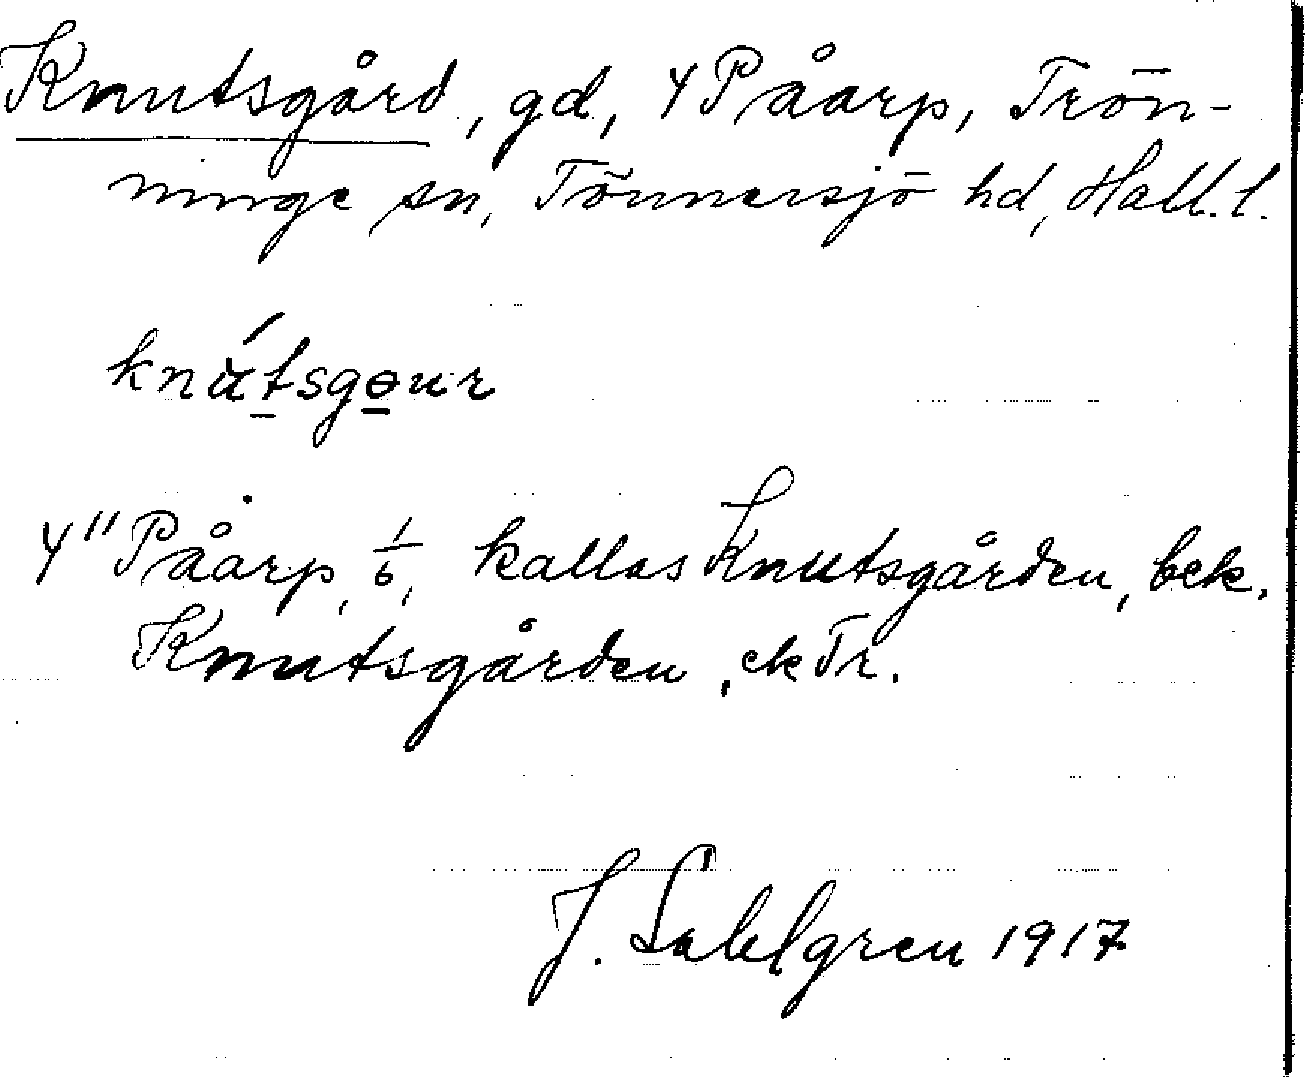 Knutsgård, gd, 4 Påarp, Trön-
ninge sn, Tönnersjö hd, Hall. l.
knútsgɵur
4" Påarp, 1/6, kallas Knutsgården, bek.
Knutsgården, ek Tr.
J. Sahlgren 1917